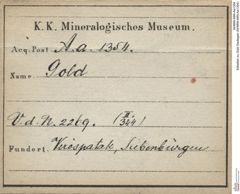 K. K. Mineralogisches Museum.
Acq. Post A.a. 1354.
Name Gold
V.d.N. 2269.
Fundort. Vöröspatak, Siebenbürgen